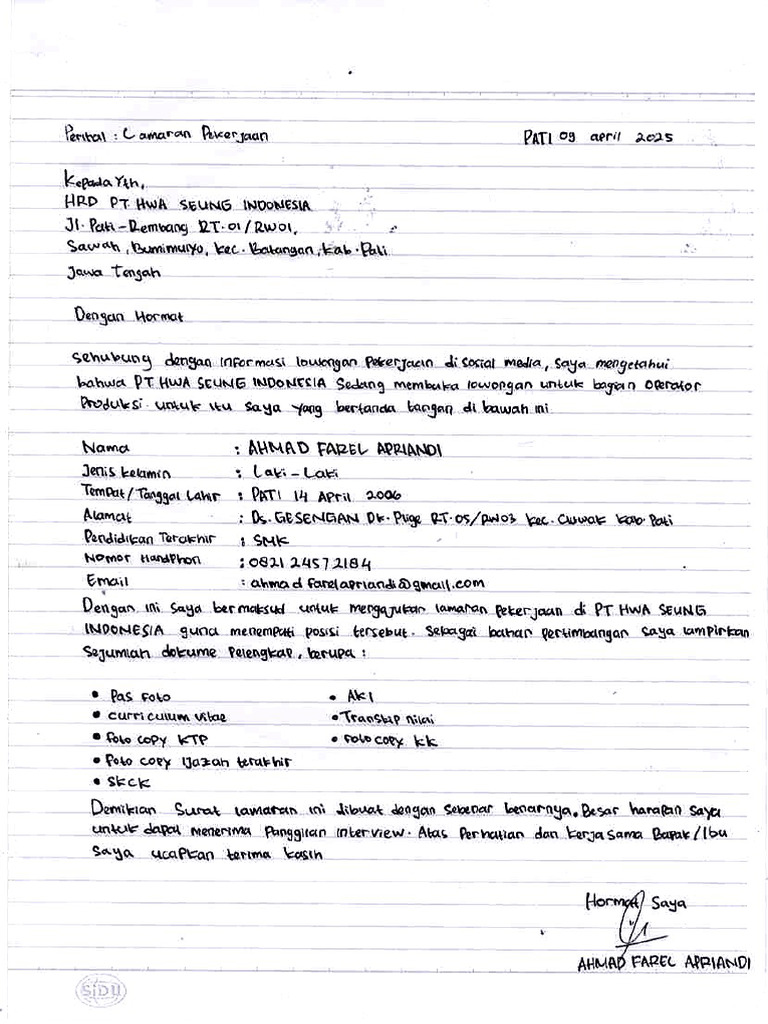 Perihal : Lamaran Pekerjaan PATI 09 april 2025
Kepada Yth,
HRD PT. HWA SEUNG INDONESIA
Jl. Pati - Rembang RT. 01 / RW01,
Sawah, Bumimulyo, Kec. Batangan, Kab. Pati
Jawa Tengah
Dengan Hormat
Sehubung dengan informasi lowongan Pekerjaan di sosial media, saya mengetahui
bahwa PT HWA SEUNG INDONESIA Sedang membuka lowongan untuk bagian Operator
Produksi. untuk itu saya yang bertanda tangan di bawah ini
Nama : AHMAD FAREL APRIANDI
Jenis kelamin : Laki - Laki
Tempat / Tanggal Lahir : PATI 14 April 2006
Alamat : Ds. GESENGAN Dk. RT. 05/RW03 Kec. Cluwak Kab. Pati
Pendidikan Terakhir : SMK
Nomor Handphon : 0821 2457 2184
Email : ahmad farelapriandi@gmail.com
Dengan ini Saya bermaksud untuk mengajukan lamaran Pekerjaan di PT HWA SEUNG
INDONESIA guna menempati posisi tersebut. Sebagai bahan pertimbangan saya lampirkan
Sejumlah dokume Pelengkap, berupa :
• Pas Foto • AK1
• curriculum vitae • Transkip nilai
• foto copy KTP • foto copy KK
• foto copy Ijazah terakhir
• SKCK
Demikian Surat lamaran ini dibuat dengan sebenar benarnya. Besar harapan Saya
untuk dapat menerima Panggilan interview. Atas Perhatian dan kerja sama Bapak/Ibu
Saya ucapkan terima kasih
Hormat Saya
AHMAD FAREL APRIANDI
SiDU